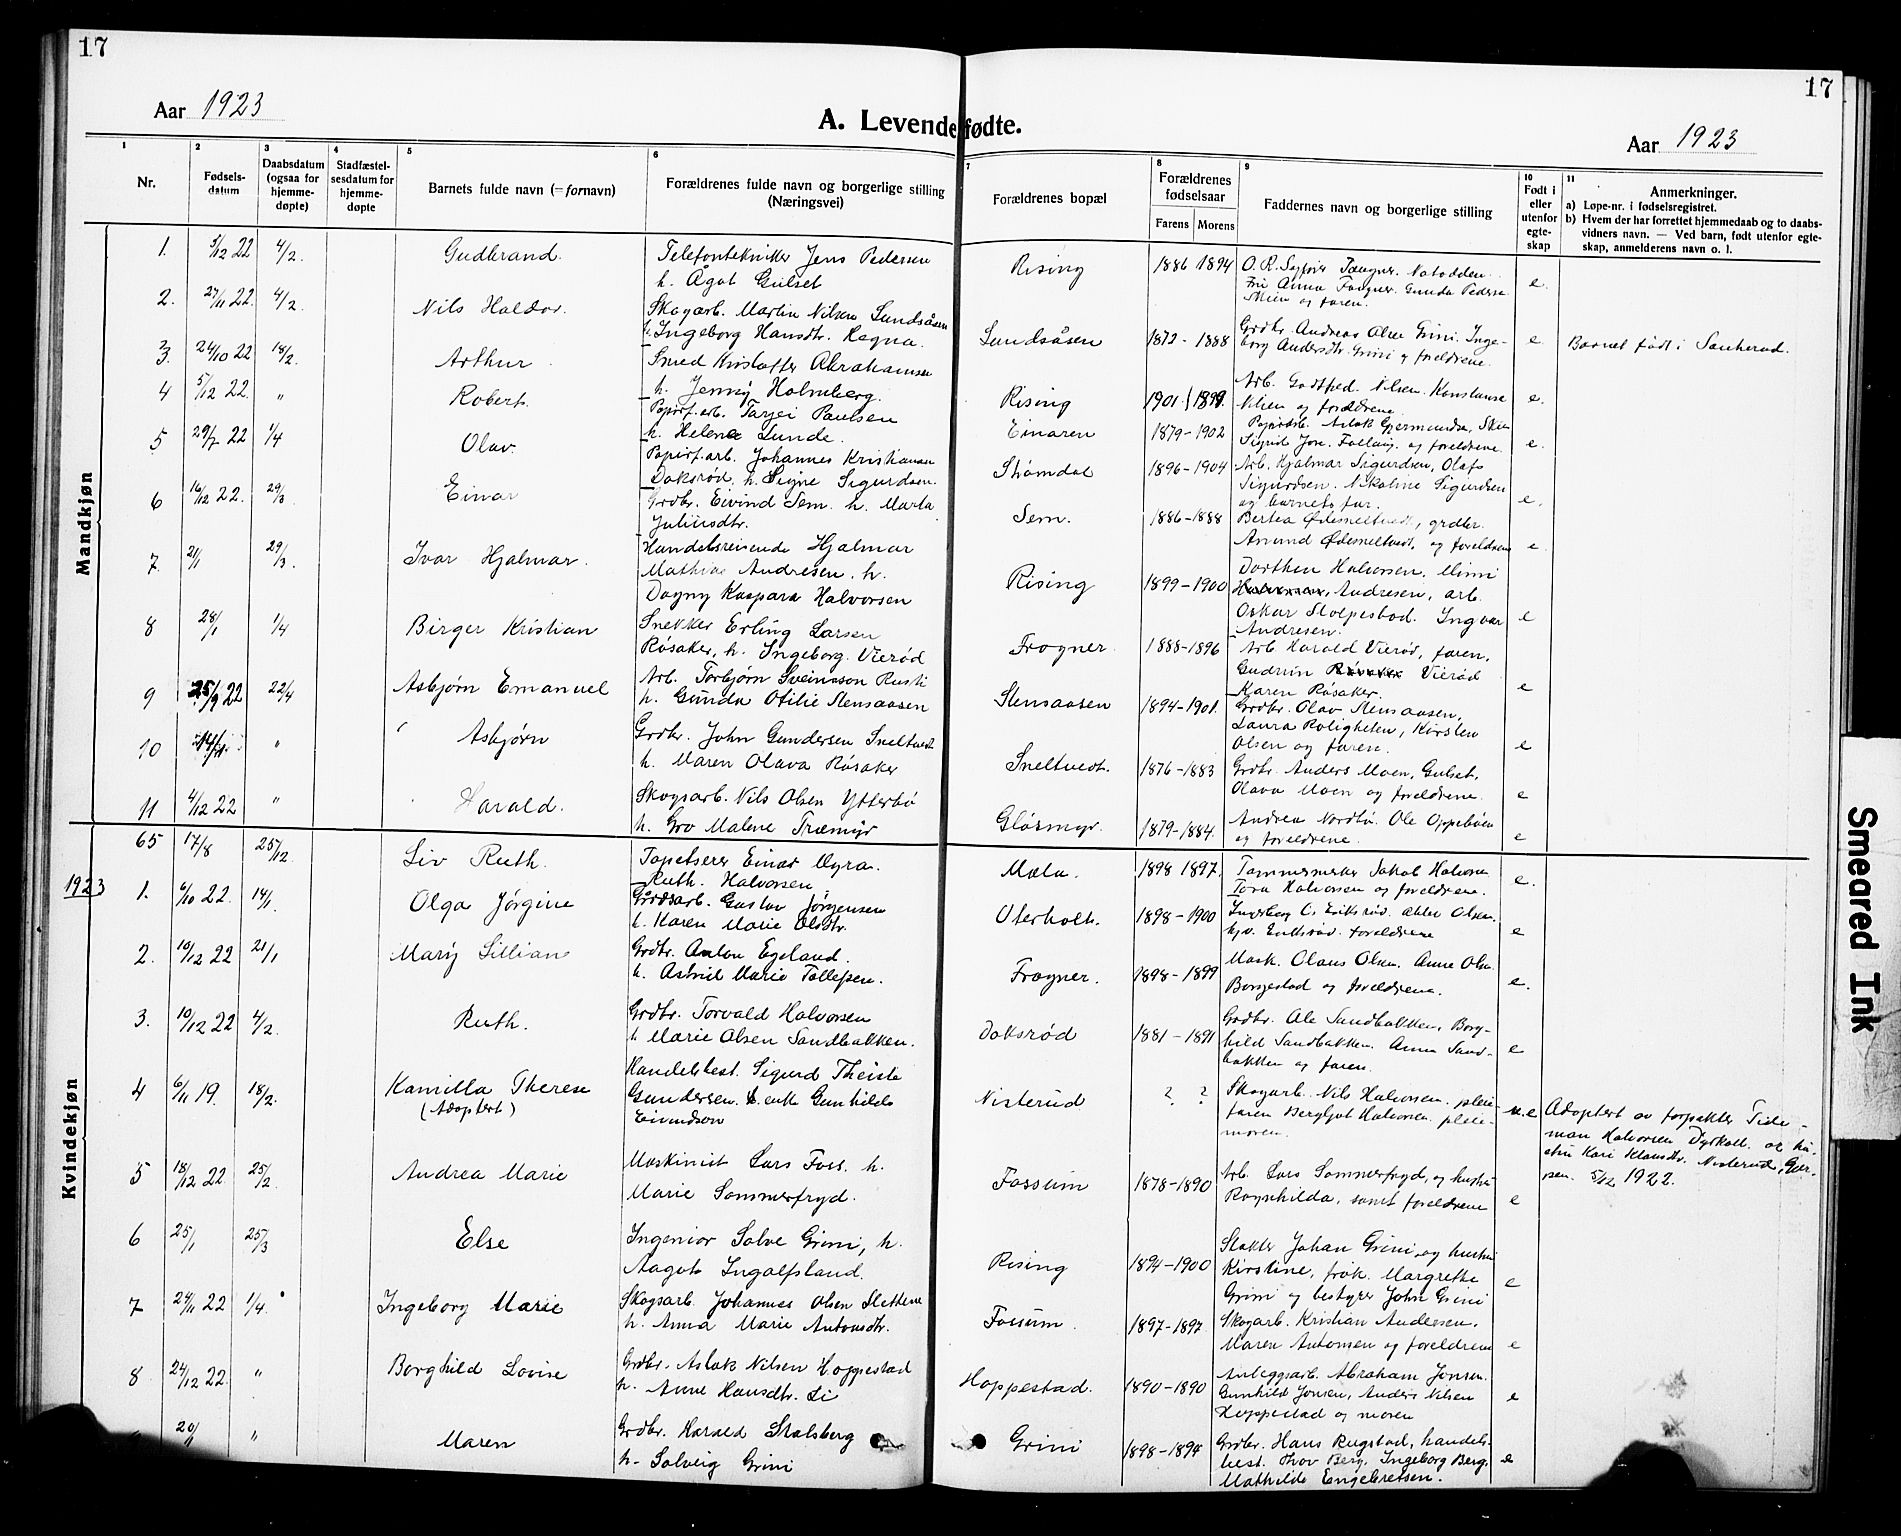 17
17
Aar 1923
A. Levendefødte.
Aar 1923
1
Nr.
2
Fødsels-
datum
3
Daabsdatum
(ogsaa for
hjemme-
døpte)
4
Stadfæstel-
sesdatum for
hjemme-
døpte
5
Barnets fulde navn (= fornavn)
6
Forældrenes fulde navn og borgerlige stilling
(Næringsvei)
7
Forældrenes bopæl
8
Forældrenes
fødselsaar
Farens Morens
9
Faddernes navn og borgerlige stilling
10
Født i
eller
utenfor
egte-
skap
11
Anmerkninger.
a) Løpe-nr. i fødselsregistret.
b) Hvem der har forrettet hjemmedaab og to daabs-
vidners navn. — Ved barn, født utenfor egte-
skap, anmelderens navn o. l.
Mandkjøn
1. 5/12 22 4/2. Gudbrand.
Telefontekniker Jens Pedersen
h. Ågot Gulset
Rising 1886 1894
Notodden.
Fru Anna Gunda
og faren.
e.
2. 27/11 22. 4/2. Nils Haldor.
Skogarb. Martin Nilsen Sundsåsen
h. Ingeborg Hansdtr. Regna.
Sundsåsen 1872 - 1888
Grdbr. Andreas Olsen Grini. Inge-
borg Andersdtr. Grini og foreldrene.
e. Barnet født i Sauherad.
3. 24/10 22 18/2. Arthur
Smed Kristoffer Abrahamsen
h. Jenny Holmberg.
Rising 1901. 1899.
Arb. Godtfred Nilsen. Konstanse
Nilsen og foreldrene.
e.
4 5/12 22. " Robert.
Papirf. arb. Tarjei Paulsen
h. Helene Lunde.
Einaren 1879 - 1902
Papirarb. Aslak
Sigrid og foreldrene.
e.
5 29/7 22 1/4 Olav.
Papirf. arb. Johannes Kristiansen
Doksrød. h. Signe Sigurdsen.
Strømdal 1896 - 1904
Arb. Hjalmar Sigurdsen, Olaf
Sigurdsen. Nikoline Sigurdsen
og barnets far.
e.
6 16/12 22. 29/3 Einar
Grdbr. Eivind Sem. h. Marta
Juliusdtr.
Sem. 1886 - 1888
Bertea Ødesneltvedt, grdbr.
Amund Ødesneltvedt, og foreldrene
e
7. 2/1 29/3. Ivar Hjalmar.
Handelsreisende Hjalmar
Mathias Andresen. h.
Dagny Kaspara Halvorsen
Rising 1899 - 1900
Dorthea Halvorsen. Mimi
Halvorsen, Andresen, arb.
Oskar Stolpestad. Ingvar
Andresen.
e
8 28/1 1/4 Birger Kristian
Snekker Erling Larsen
Røsaker, h. Ingeborg. Vierød
Frogner. 1888 - 1896
Arb. Harald Vierød, faren,
Gudrun Røsaker Vierød
Karen Røsaker.
e
9 25/9 22 22/4 Asbjørn Emanuel
Arb. Torbjørn Sveinsson Rusti
h. Gunda Otilie Stensaasen
Stensaasen 1894 - 1901.
Grdbr. Olav Stensaasen,
Laura Roligheten, Kirsten
Olsen og faren.
e
10 " Asbjørn
Grdbr. John Gundersen Sneltvedt
h. Maren Olava Røsaker
Sneltvedt. 1876 - 1883
Grdbr. Anders Moen, Gulset,
Olava Moen og foreldrene.
e
11 4/12 22 " Harald.
Skogsarb. Nils Olsen Ytterbø
h. Gro Malene Træmyr
Gløsmyr. 1879 - 1884.
Andrea Nordbø. Ole Oppebøen
og foreldrene.
e
Kvindekjøn
65 17/8 25/12. Liv Ruth.
Tapetserer Einar Myra.
Ruth. Halvorsen
Mæla. 1898 1897.
Tømmermerker Jakob Halvorsen
Tora Halvorsen og foreldrene.
e.
1923
1. 6/10 22. 14/1. Olga Jørgine
Gårdsarb. Gustav Jørgensen
h. Karen Marie Olsdtr.
Oterholt. 1898 - 1900
Ingeborg O. Eriksrød. Olsen.
foreldrene
e
2. 10/12 22 21/1 Mary Lillian
Grdbr. Anton Egeland.
h. Astrid Marie Tollefsen.
Frogner. 1898 - 1899
Mask. Olaus Olsen. Anne Olsen
Borgestad og foreldrene.
e.
3. 10/12 22 4/2. Ruth.
Grdbr. Torvald Halvorsen
h. Marie Olsen Sandbakken.
Doksrød 1881 - 1891
Grdbr. Ole Sandbakken, Borg-
hild Sandbakken. Anna Sand-
bakken og faren.
e
4 6/11 19. 18/2. Kamilla Therese
(Adoptert)
Handelsbest. Sigurd Theiste
Gundersen. & enke Gunhild
Eivindson
Nisterud ? ?
Skogarb. Nils Halvorsen. pleie-
faren Bergljot Halvorsen. pleie-
moren.
u. e
Adoptert av forpakter Tide-
man Halvorsen Dyrkoll. og hu-
stru Kari Klausdtr. Nisterud, Gjer-
pen. 5/12 1922.
5 18/12 22. 25/2. Andrea Marie
Maskinist Lars Foss. h.
Marie Sommerfryd.
Fossum 1878 - 1890
Arb. Lars Sommerfryd, og hustru
Ragnhilda, samt foreldrene
e
6 25/1 25/3 Else
Ingeniør Salve Grini, h.
Aagot Ingolfsland.
Rising 1894 - 1900
Slakter Johan Grini og hustru
Kirstine, frøk. Margrethe
Grini og bestyrer John Grini
e
7 24/11 22 1/4. Ingeborg Marie
Skogsarb. Johannes Olsen Slettene
h. Anna Marie Antonsdtr.
Fossum. 1897 - 1897
Skogarb. Kristian Andersen,
Maren Antonsen og foreldrene
e
8 24/12 22. " Borghild Lovise
Grdbr. Aslak Nilsen Hoppestad
h. Anne Hansdtr. Li
Hoppestad. 1890 - 1890
Anleggsarb. Abraham Jonsen.
Gunhild Jonsen, Anders Nilsen
Hoppestad og moren
e
20/11 " Maren
Grdbr. Harald Skalsberg
h. Solveig Grini
Grini 1898 - 1894
Grdbr. Hans Rugstad, handels-
best. Thov Berg, Ingeborg Berg,
Mathilde Engebretsen.
e
Smeared Ink